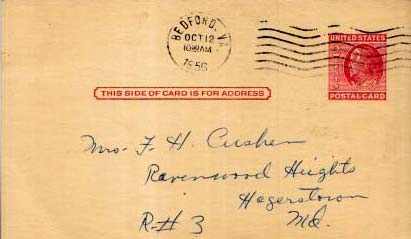 BEDFORD, VA.
OCT 12
1030 AM
1956
UNITED STATES
POSTAL CARD
THIS SIDE OF CARD IS FOR ADDRESS
Mrs. F. H. Cushen
Ravenwood Heights
Hagerstown
R# 3 Md.